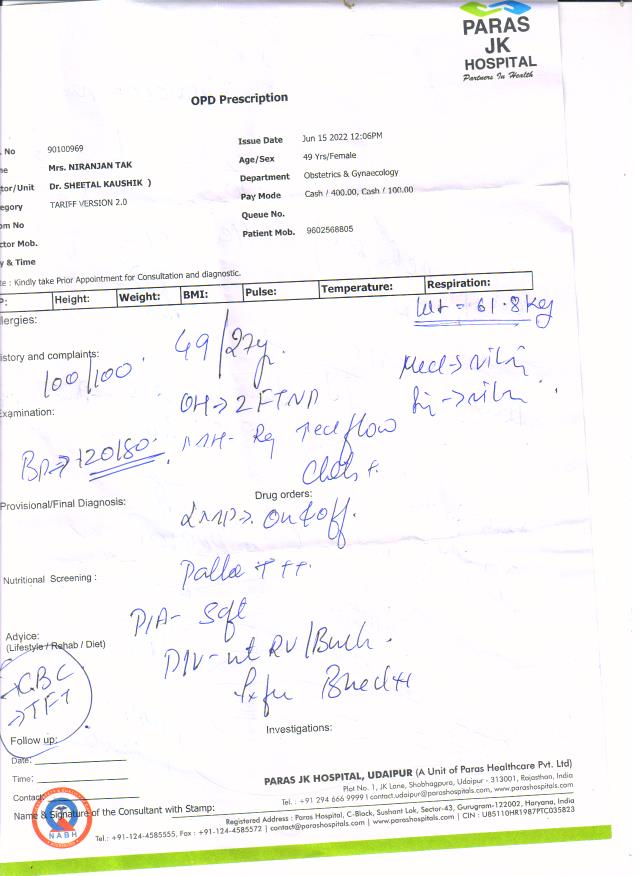 PARAS
JK
HOSPITAL
Partners In Health
OPD Prescription
. No 90100969
Issue Date Jun 15 2022 12:06PM
me Mrs. NIRANJAN TAK
Age/Sex 49 Yrs/Female
tor/Unit Dr. SHEETAL KAUSHIK )
Department Obstetrics & Gynaecology
egory TARIFF VERSION 2.0
Pay Mode Cash / 400.00, Cash / 100.00
om No
Queue No.
ctor Mob.
Patient Mob. 9602568805
y & Time
e : Kindly take Prior Appointment for Consultation and diagnostic.
P: Height: Weight: BMI: Pulse: Temperature: Respiration:
lergies:
Wt = 61.8 Kg
istory and complaints:
49/27y.
100/100
Med -> nil
-> nil
Examination:
OH -> 2 FTND
BP -> 120/80.
MH - Reg flow
Clots +
Provisional/Final Diagnosis:
Drug orders:
LMP -> On & off.
Nutritional Screening :
Pallor + ++
P/A - Soft
Advice:
(Lifestyle / Rehab / Diet)
P/V - ut RV / Bulk
-> CBC
-> TFT
Bleed ++
Investigations:
Follow up:
Date:
Time:
Contact
Name & Signature of the Consultant with Stamp:
NABH
PARAS JK HOSPITAL, UDAIPUR (A Unit of Paras Healthcare Pvt. Ltd)
Plot No. 1, JK Lane, Shobhagpura, Udaipur - 313001, Rajasthan, India
Tel. : +91 294 666 9999 | contact.udaipur@parashospitals.com, www.parashospitals.com
Registered Address : Paras Hospital, C-Block, Sushant Lok, Sector-43, Gurugram-122002, Haryana, India
Tel.: +91-124-4585555, Fax : +91-124-4585572 | contact@parashospitals.com | www.parashospitals.com | CIN : U85110HR1987PTC035823